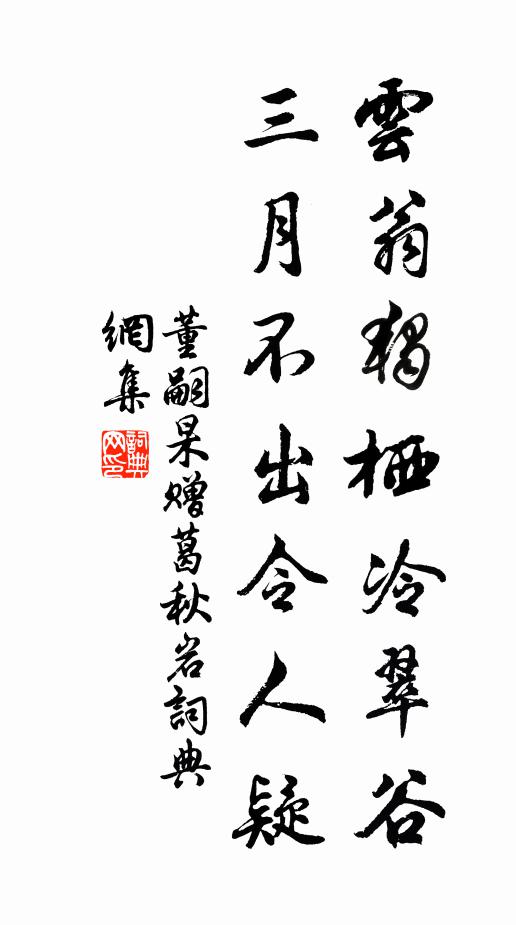 雲翁獨栖冷翠谷
三月不出令人疑
董嗣杲贈葛秋岩詞典
網集
詞典網印